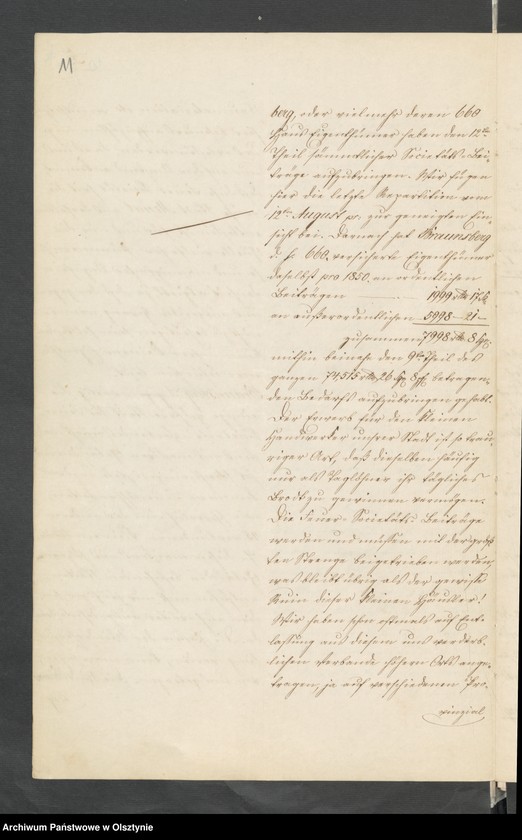 11
berg, oder vielmehr deren 660
Haus Eigenthümer haben den 12ten
Theil sämmtlicher Societäts-Bei-
träge aufzubringen. Wir fügen
hier die letzte Repartition vom
12ten August pr. zur geneigten Ein-
sicht bei. Darnach hat Braunsberg
d. h. 660 versicherte Eigenthümer
daselbst pro 1850, an ordentlichen
Beiträgen 1999 rtl 17 Sg
an außerordentlichen 5998 - 21 -
zusammen 7998 rtl 8 Sgr,
mithin beinahe den 9ten Theil des
ganzen 74515 rtl 26 Sgr 8 pf betragen-
den Bedarfs aufzubringen gehabt.
Der Erwerb für den kleinen
Handwerker unsrer Stadt ist so trau-
riger Art, daß dieselben häufig
nur als Taglöhner ihr tägliches
Brodt zu gewinnen vermögen.
Die Feuer-Societäts-Beiträge
werden und müssen mit der größ-
ten Strenge beigetrieben werden,
was bleibt übrig als der gewisse
Ruin dieser kleinen Häusler!
Wir haben schon oftmals auf Ent-
lassung aus diesem uns verderb-
lichen Verbande höhern Orts ange-
tragen, ja auf verschiedenen Pro-
vinzial
Archiwum Państwowe w Olsztynie